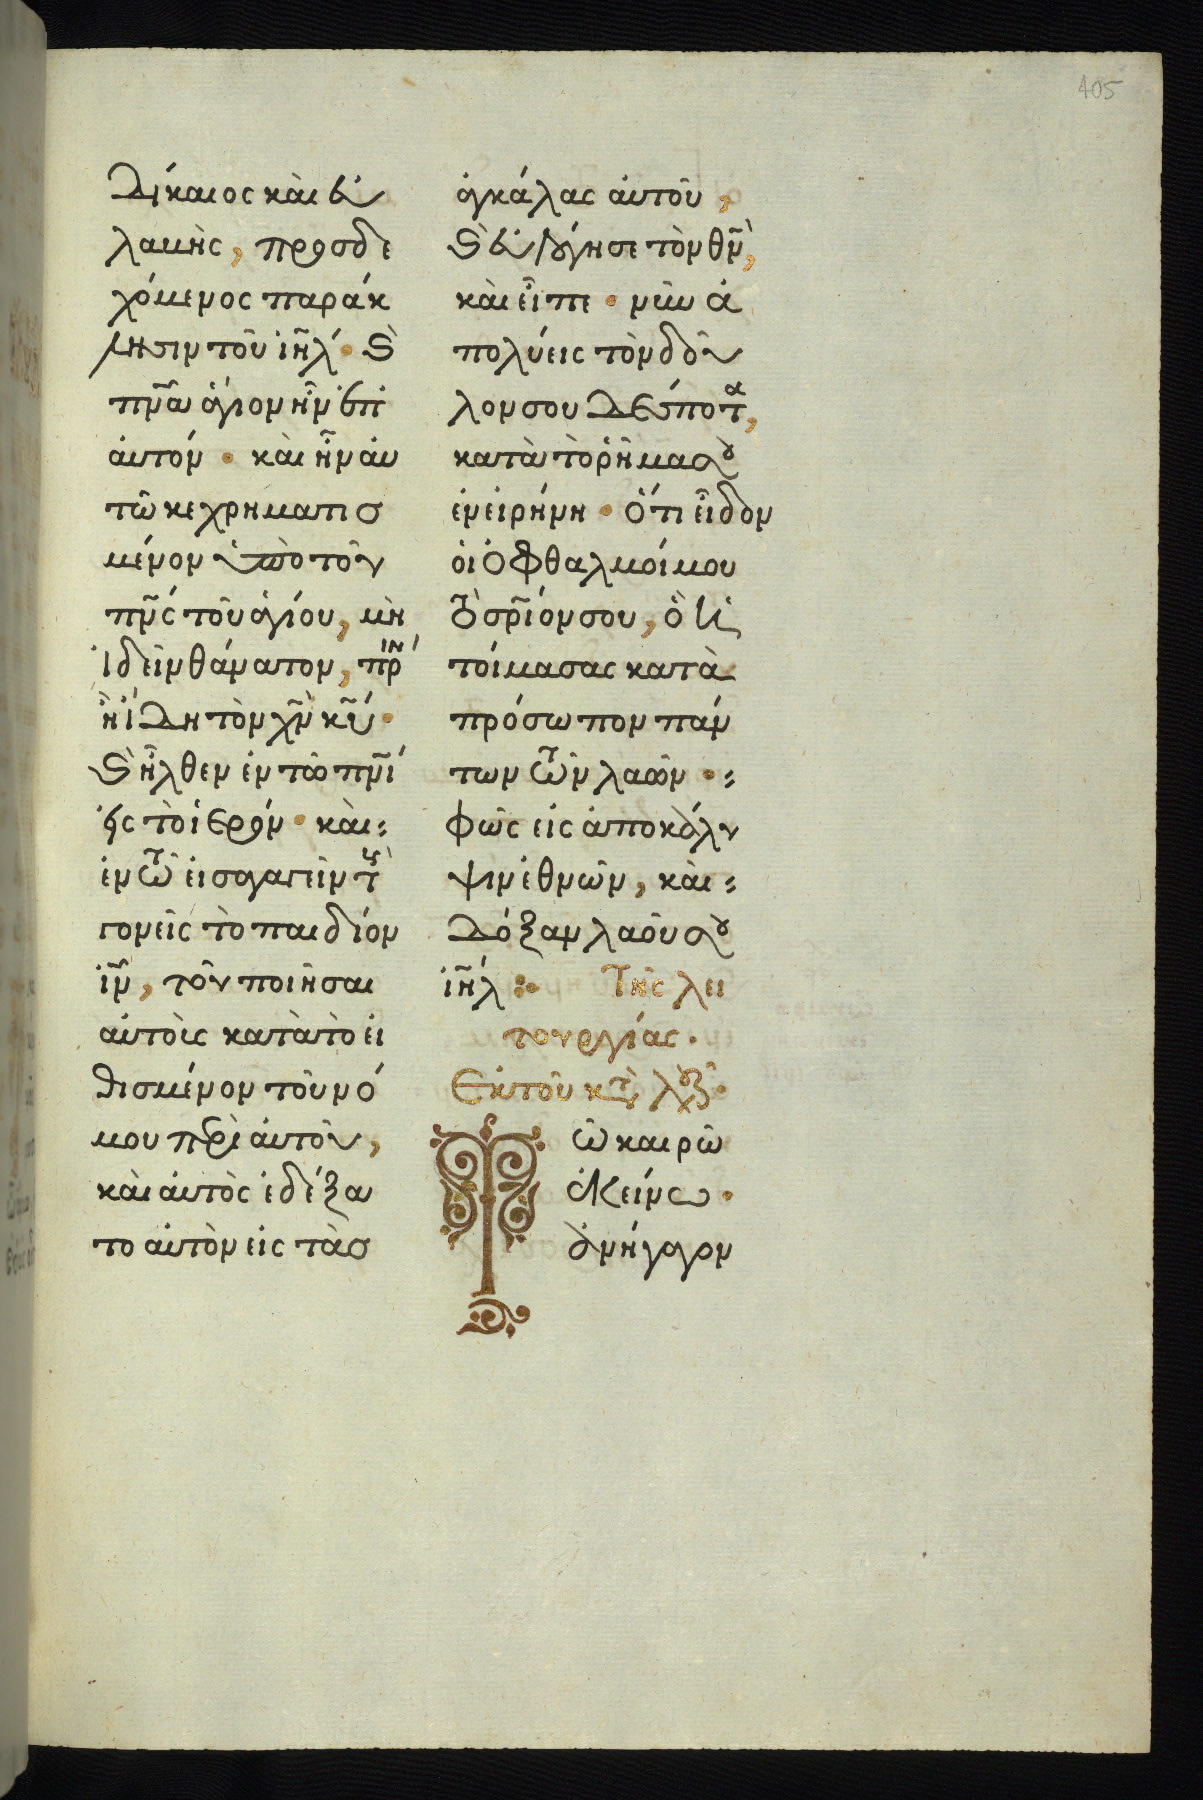 405
δίκαιος καὶ εὐ
λαμὴς, προσδε
χόμενος παράκ
λησιν τοῦ ἰη̅λ· ϗ̀
πν̅α ἅγιον ἦν ἐπ'
αὐτόν· καὶ ἦν αὐ
τῶ κεχρηματισ
μένον ὑπὸ τοῦ
πν̅ς τοῦ ἁγίου, μὴ
ἰδεῖν θάνατον, πρὶν
ἢ ἴδη τὸν χν̅ κυ̅·
ϗ̀ ἦλθεν ἐν τῶ πν̅ι
εἰς τὸ ἱερόν· καὶ
ἐν τῶ εἰσαγαγεῖν τοὺς
γονεῖς τὸ παιδίον
ἰν̅, τοῦ ποιῆσαι
αὐτοὶς κατὰ τὸ εἰ
θισμένον τοῦ νό
μου περὶ αὐτοῦ,
καὶ αὐτὸς ἐδέξα
το αὐτὸν εἰς τὰσ
ἀγκάλας αὐτοῦ,
ϗ̀ εὐλόγησε τὸν θν̅,
καὶ εἶπε· νῦν ἀ
πολύεις τὸν δοῦ
λον σου δέσποτα,
κατὰ τὸ ῥῆμα σου
ἐν εἰρήνη· ὅτι εἶδον
οἱ ὀφθαλμοί μου
τὸ σρ̅ιόν σου, ὃ ἡ
τοίμασας κατὰ
πρόσωπον πάν
των τῶν λαῶν·
φῶς εἰς ἀποκάλυ
ψιν ἐθνῶν, καὶ
δόξαν λαοῦ σου
ἰη̅λ: Τῆς λει
τουργίας.
Ἐκ τοῦ κατὰ λουκᾶν·
Τῶ καιρῶ
ἐκείνω·
ἀνήγαγον